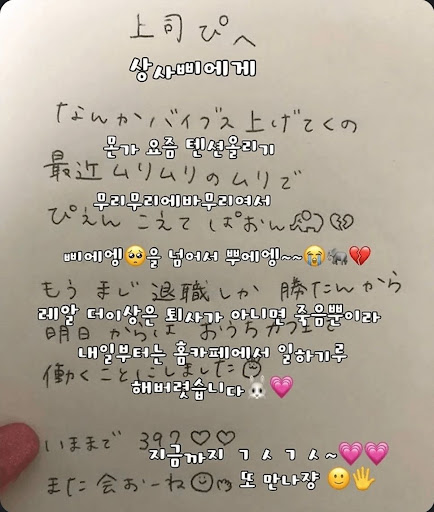 上司ぴへ
상사삐에게
なんかバイブス上げてくの
몬가 요즘 텐션올리기
最近ムリムリのムリで
무리무리에바무리여서
ぴえんこえてぱおん
삐에엥🥺을 넘어서 뿌에엥~~😭🐘💔
もうまじ退職しか勝たんから
레알 더이상은 퇴사가 아니면 죽음뿐이라
明日からは おうちカフェ
내일부터는 홈카페에서 일하기루
働くことにしました
해버렷습니다🐰💗
いままで 397♡♡
지금까지 ㄱㅅㄱㅅ~💗💗
また会おーね
또 만나쟝 🙂🖐